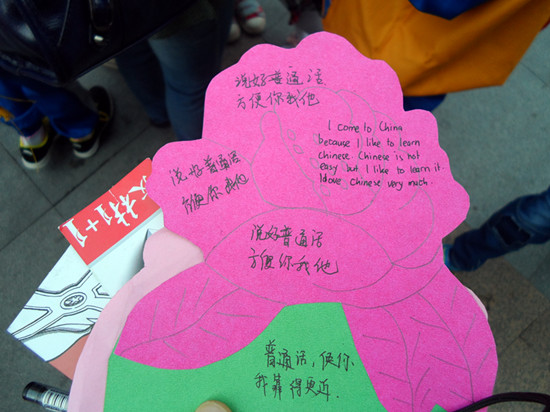 说好普通话
方便你我他
I come to China
because I like to learn
chinese. Chinese is not
easy but I like to learn it.
I love Chinese very much.
说好普通话
方便你我他
说好普通话
方便你我他
普通话,使你
我靠得更近.
技+1